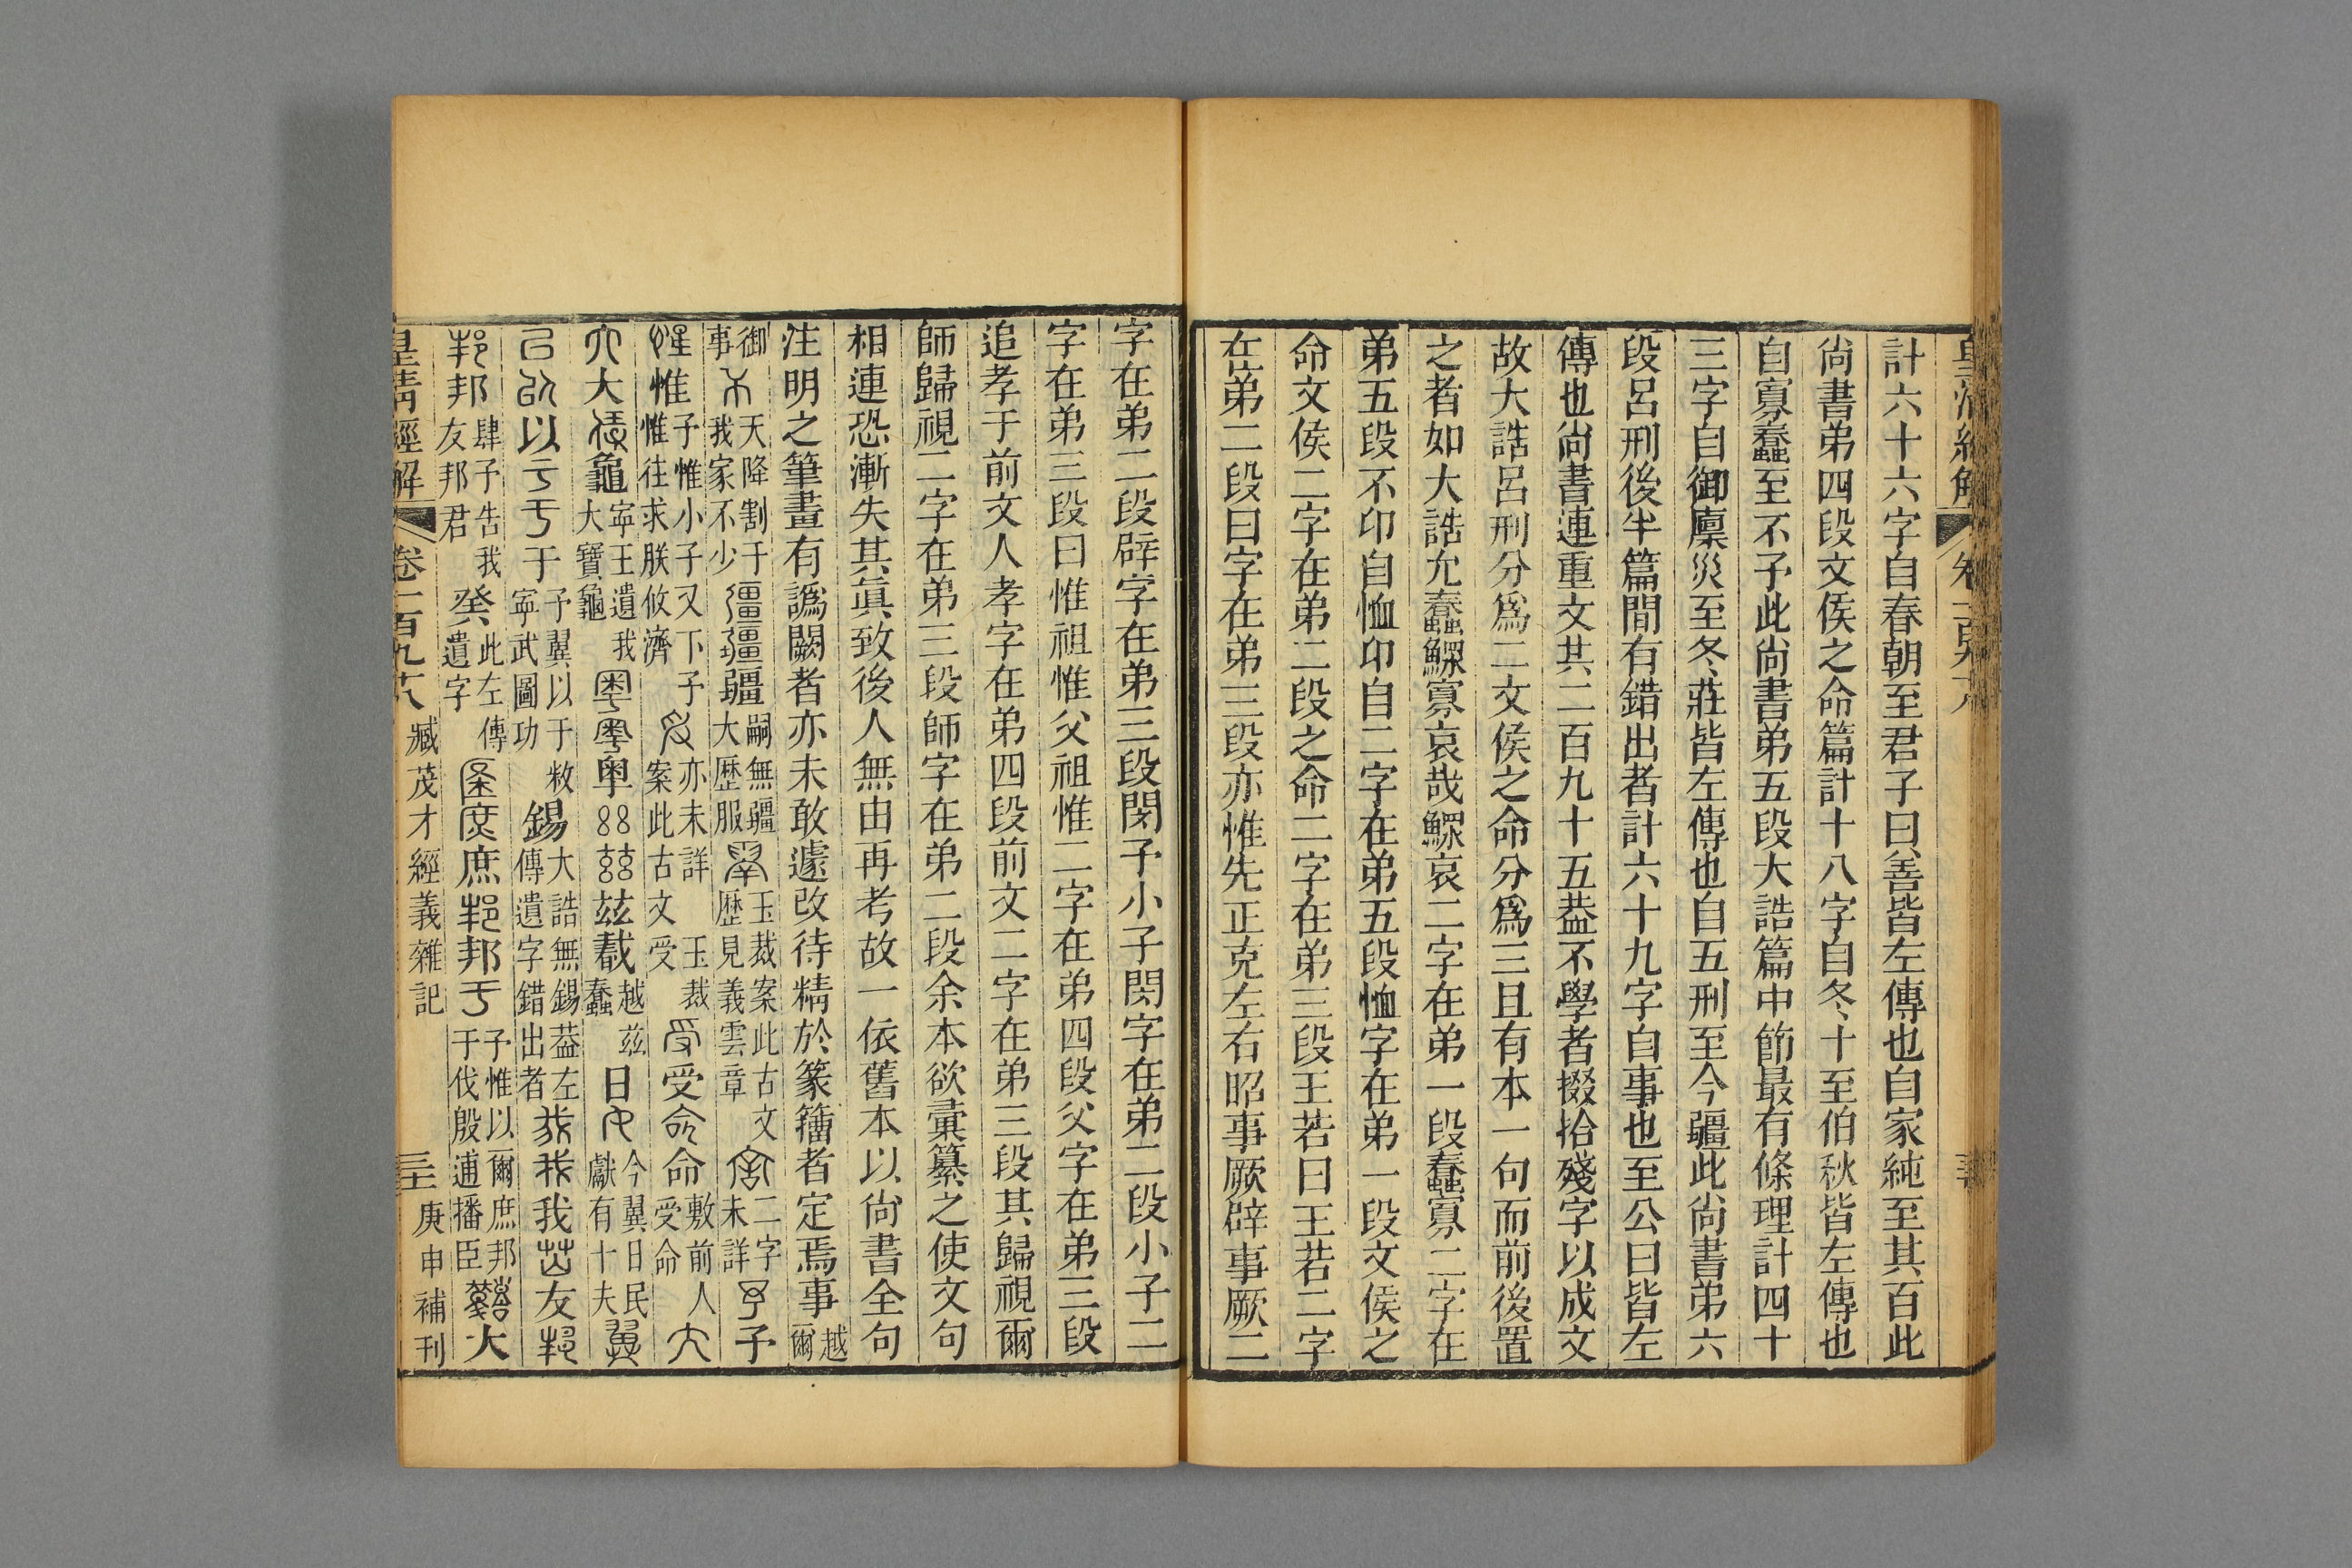 皇清經解 卷一百九十八
計六十六字自春朝至君子曰善皆左傳也自家純至其百此
尙書弟四段文侯之命篇計十八字自冬十至伯秋皆左傳也
自寡蠢至不予此尙書弟五段大誥篇中節最有條理計四十
三字自御廩災至冬莊皆左傳也自五刑至今疆此尙書弟六
段呂刑後半篇間有錯出者計六十九字自事也至公曰皆左
傳也尙書連重文共二百九十五葢不學者掇拾殘字以成文
故大誥呂刑分爲二文侯之命分爲三且有本一句而前後置
之者如大誥允蠢鰥寡哀哉鰥哀二字在弟一段蠢寡二字在
弟五段不卬自恤卬自二字在弟五段恤字在弟一段文侯之
命文侯二字在弟二段之命二字在弟三段王若曰王若二字
在弟二段曰字在弟三段亦惟先正克左右昭事厥辟事厥二
字在弟二段辟字在弟三段閔予小子閔字在弟二段小子二
字在弟三段曰惟祖惟父祖惟二字在弟四段父字在弟三段
追孝于前文人孝字在弟四段前文二字在弟三段其歸視爾
師歸視二字在弟三段師字在弟二段余本欲彙纂之使文句
相連恐漸失其眞致後人無由再考故一依舊本以尙書全句
注明之筆畫有譌闕者亦未敢遽改待精於篆籀者定焉事越爾
御事不天降割于我家不少疆疆疆嗣無疆大歷服玉裁案此古文歷見義雲章二字未詳予予
惟惟予惟小子又下予惟往求朕攸濟亦未詳玉裁案此古文受受受命命敷前人受命大
大大龜寧王遺我大寶龜粵兹兹戴越兹蠢日今翼日民獻有十夫翼
以以于于予翼以于敉寧武圖功錫大誥無錫葢左傳遺字錯出者我我我友友邦
邦邦肆予告我友邦君癸此左傳遺字庶庶庶邦邦于予惟以爾庶邦于伐殷逋播臣大
皇清經解 卷一百九十八 臧茂才經義雜記 三十 庚申補刊